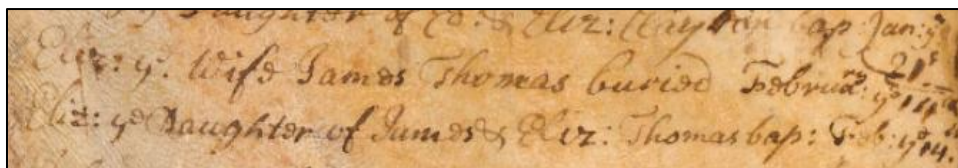 Daughter of Ed: & Eliz: Clayton bap: Jan: ye 21s
Eliz: ye. Wife James Thomas buried Februar: ye 14
Eliz: ye Daughter of James & Eliz: Thomas bap: Feb: ye 14.